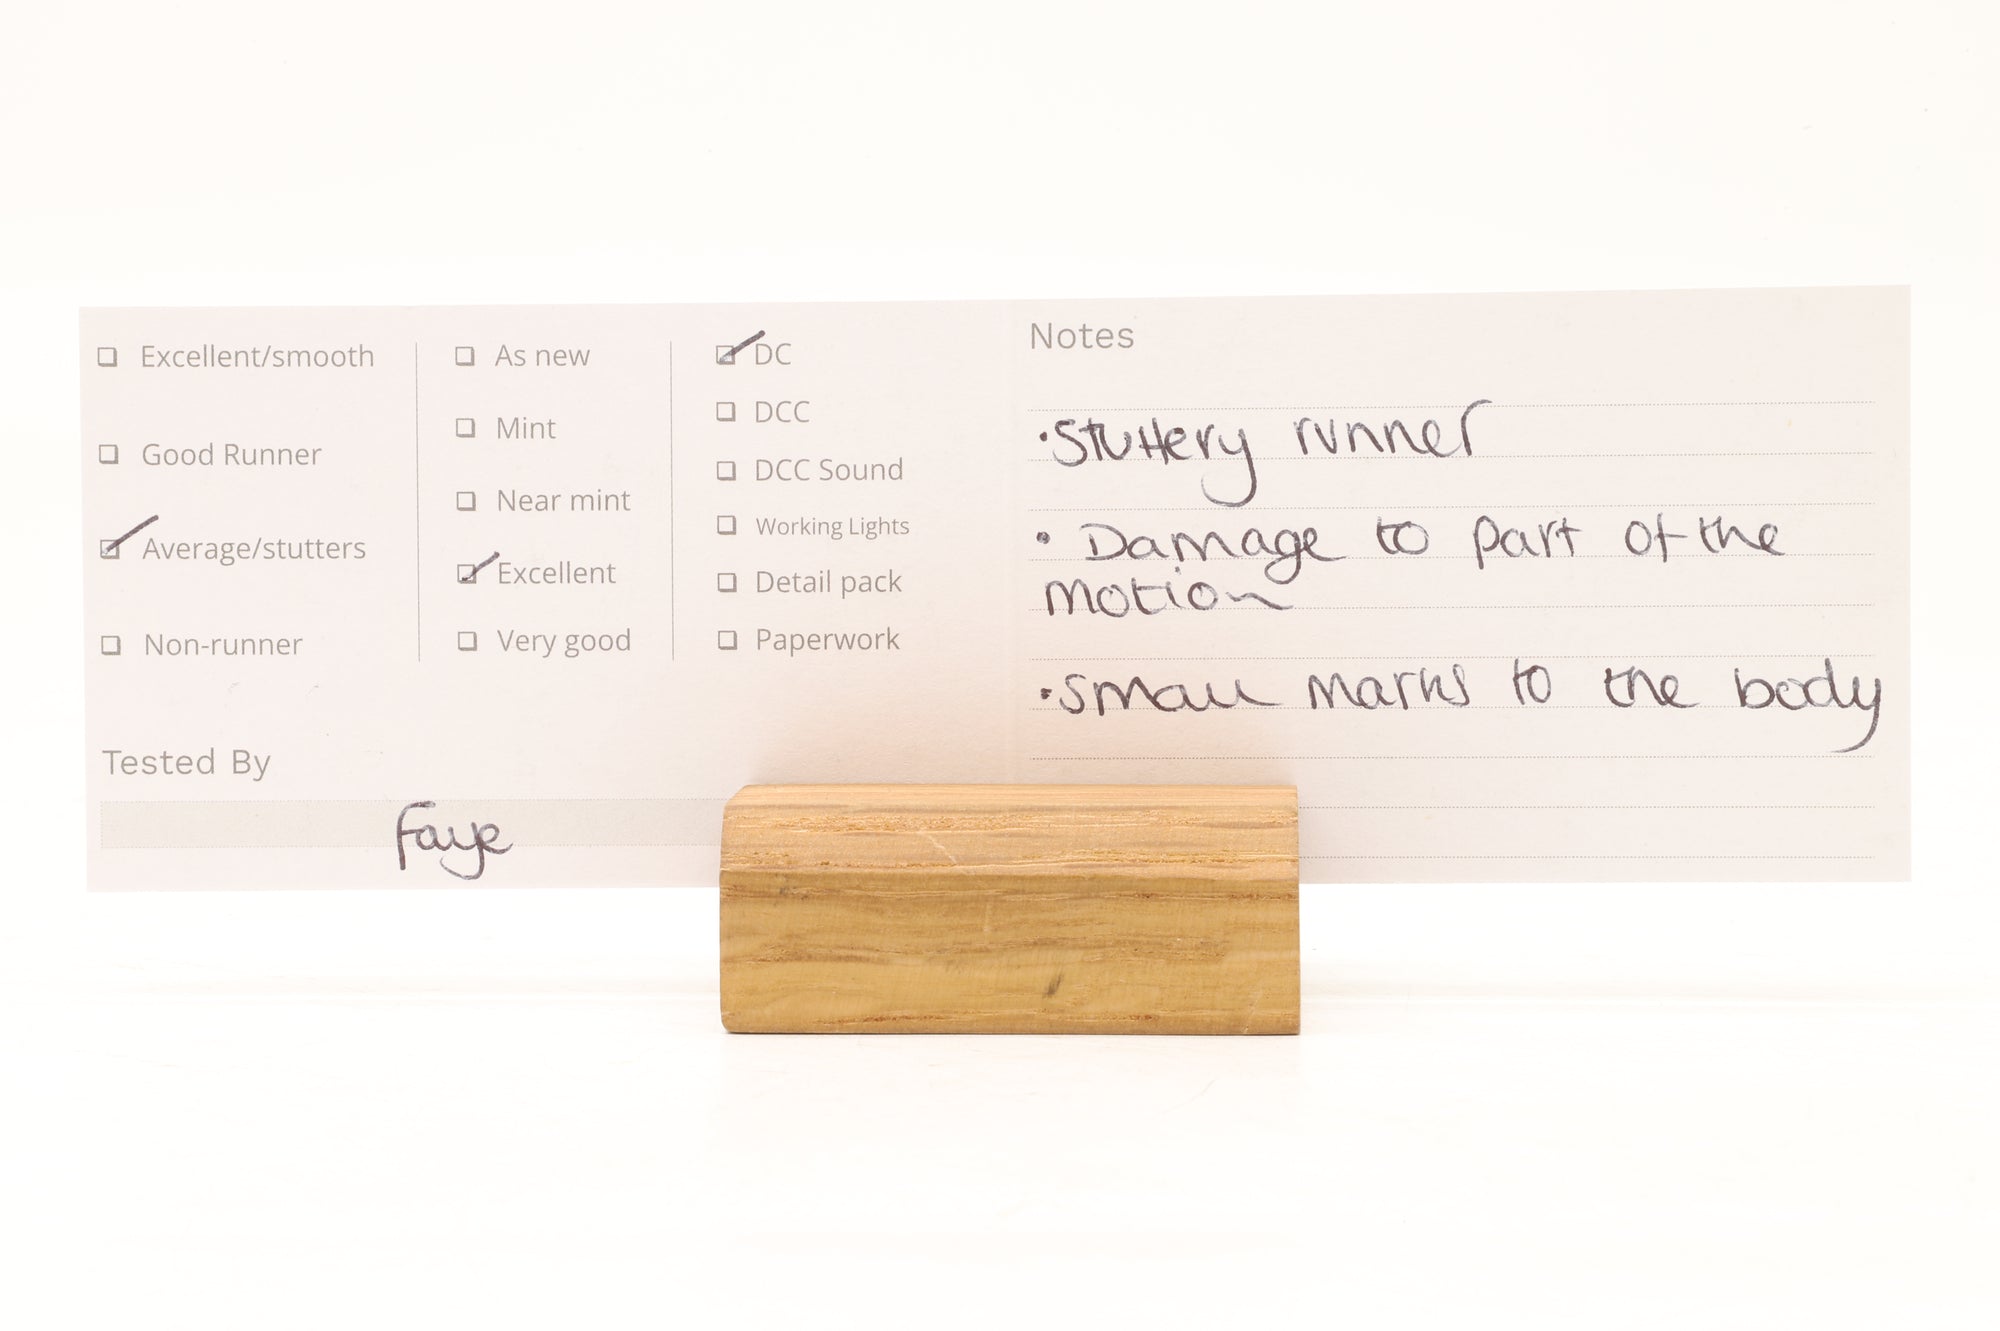 Excellent/smooth
Good Runner
Average/stutters
Non-runner
As new
Mint
Near mint
Excellent
Very good
DC
DCC
DCC Sound
Working Lights
Detail pack
Paperwork
Tested By
Faye
Notes
• Stuttery runner
• Damage to part of the
motion
• Small marks to the body